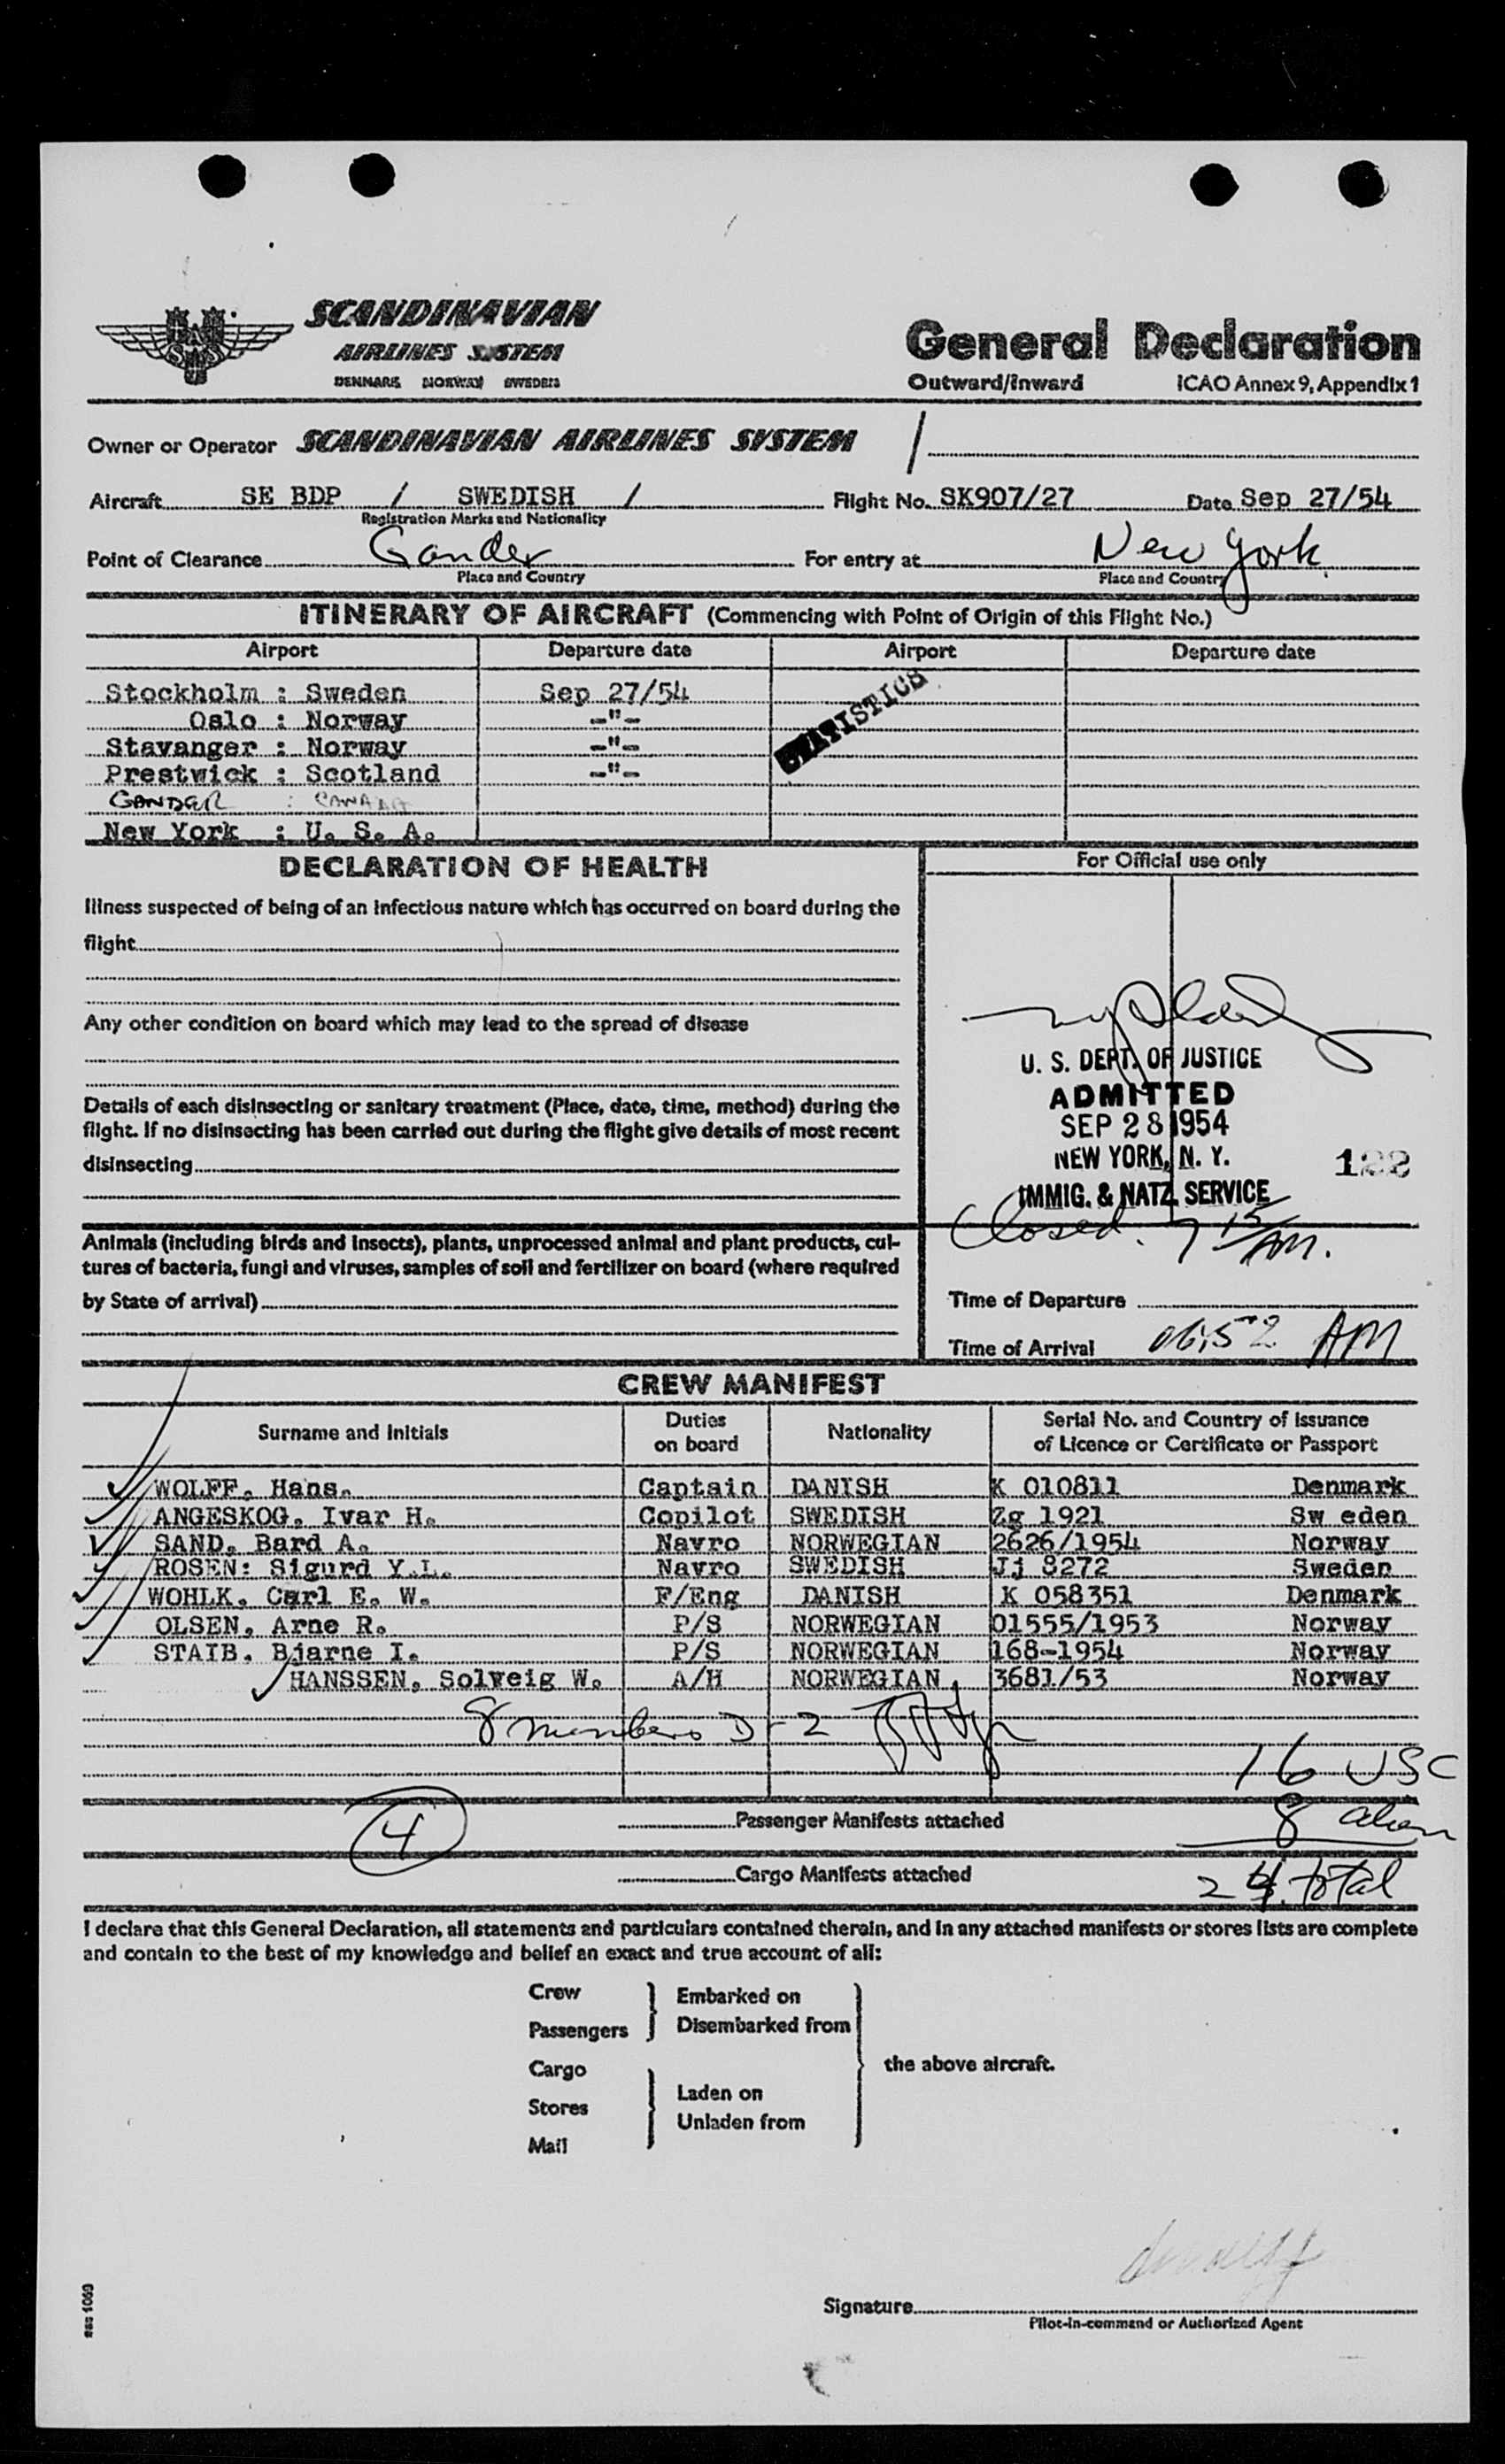 SAS
SCANDINAVIAN
AIRLINES SYSTEM
DENMARK NORWAY SWEDEN
General Declaration
Outward/Inward ICAO Annex 9, Appendix 1
Owner or Operator SCANDINAVIAN AIRLINES SYSTEM /
Aircraft SE BDP / SWEDISH / Flight No. SK907/27 Date Sep 27/54
Registration Marks and Nationality
Point of Clearance Gander For entry at New York
Place and Country Place and Country
ITINERARY OF AIRCRAFT (Commencing with Point of Origin of this Flight No.)
Airport Departure date Airport Departure date
Stockholm : Sweden Sep 27/54
Oslo : Norway -"-
Stavanger : Norway -"-
Prestwick : Scotland -"-
GANDER : CANADA
New York : U. S. A.
STATISTICS
DECLARATION OF HEALTH
Illness suspected of being of an infectious nature which has occurred on board during the
flight
Any other condition on board which may lead to the spread of disease
Details of each disinsecting or sanitary treatment (Place, date, time, method) during the
flight. If no disinsecting has been carried out during the flight give details of most recent
disinsecting
Animals (including birds and insects), plants, unprocessed animal and plant products, cul-
tures of bacteria, fungi and viruses, samples of soil and fertilizer on board (where required
by State of arrival)
For Official use only
U. S. DEPT. OF JUSTICE
ADMITTED
SEP 28 1954
NEW YORK, N. Y.
IMMIG. & NATZ. SERVICE
122
Closed. 7 15 AM.
Time of Departure
Time of Arrival 06:52 AM
CREW MANIFEST
Surname and Initials Duties on board Nationality Serial No. and Country of Issuance of Licence or Certificate or Passport
WOLFF, Hans. Captain DANISH K 010811 Denmark
ANGESKOG, Ivar H. Copilot SWEDISH Zg 1921 Sw eden
SAND, Bard A. Navro NORWEGIAN 2626/1954 Norway
ROSEN: Sigurd Y.L. Navro SWEDISH Jj 8272 Sweden
WOHLK, Carl E. W. F/Eng DANISH K 058351 Denmark
OLSEN, Arne R. P/S NORWEGIAN 01555/1953 Norway
STAIB, Bjarne I. P/S NORWEGIAN 168-1954 Norway
HANSSEN, Solveig W. A/H NORWEGIAN 3681/53 Norway
8 members D-2
16 USC
8 alien
24 total
4
Passenger Manifests attached
Cargo Manifests attached
I declare that this General Declaration, all statements and particulars contained therein, and in any attached manifests or stores lists are complete
and contain to the best of my knowledge and belief an exact and true account of all:
Crew
Passengers
Embarked on
Disembarked from
Cargo
Stores
Mail
Laden on
Unladen from
the above aircraft.
Signature
Pilot-in-command or Authorized Agent
sas 1069